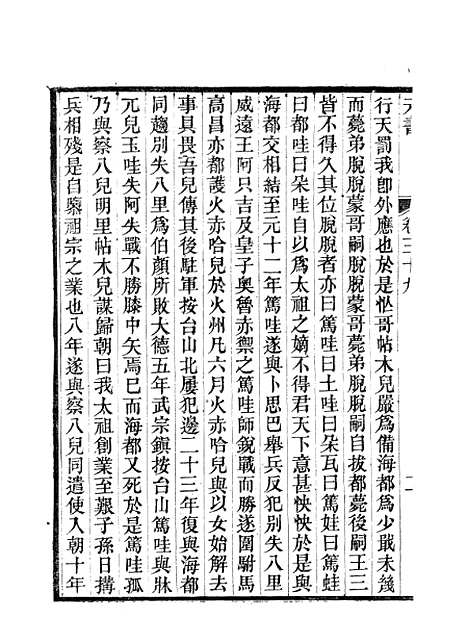 元書 卷三十九
行天罰我卽外應也於是怯哥帖木兒嚴爲備海都爲少戢未幾
而薨弟脫脫蒙哥嗣脫脫蒙哥薨弟脫脫嗣自拔都薨後嗣王三
皆不得久其位脫脫者亦曰篤哇曰土哇曰朶瓦曰篤娃曰篤蛙
曰都哇曰朶哇自以爲太祖之嫡不得君天下意甚怏怏於是與
海都交相結至元十二年篤哇遂與卜思巴舉兵反犯别失八里
威遠王阿只吉及皇子奧魯赤禦之篤哇師銳戰而勝遂圍駙馬
高昌亦都護火赤哈兒於火州凡六月火赤哈兒與以女始解去
事具畏吾兒傳其後駐軍按台山北屢犯邊二十三年復與海都
同趨别失八里爲伯顏所敗大德五年武宗鎭按台山篤哇與牀
兀兒玉哇失阿失戰不勝膝中矢焉巳而海都又死於是篤哇孤
乃與察八兒明里帖木兒謀歸朝曰我太祖創業至艱子孫日搆
兵相殘是自隳祖宗之業也八年遂與察八兒同遣使入朝十年